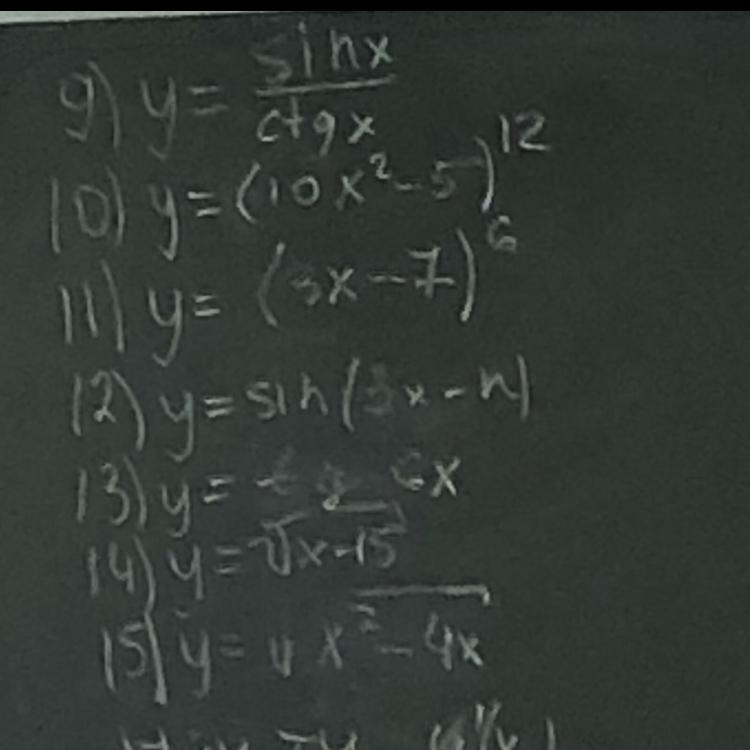 9) y = sinx / ctgx
10) y = (10x² - 5)¹²
11) y = (3x - 7)⁶
12) y = sin(3x - π)
13) y = tg 6x
14) y = √x-15
15) y = √x² - 4x